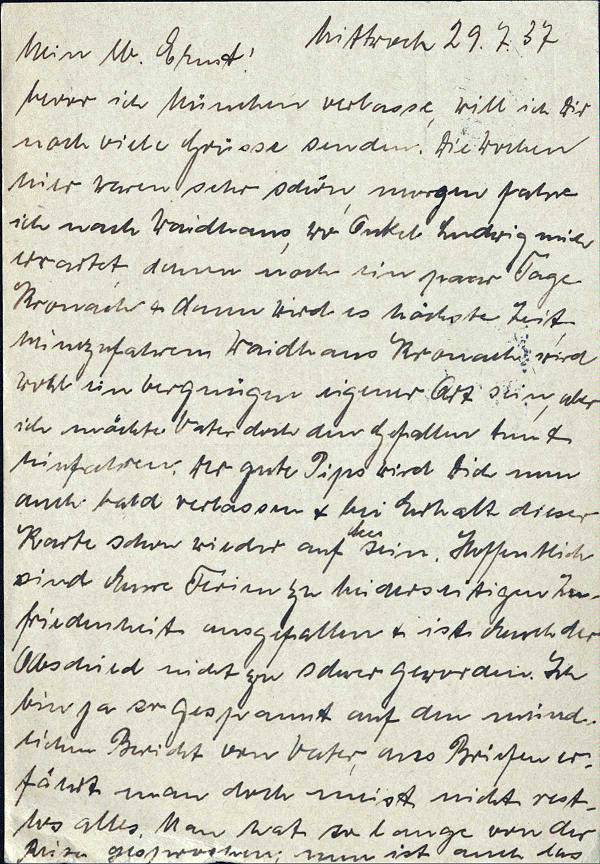 Mittwoch 29.7.37
Mein lb. Ernst!
bevor ich München verlasse, will ich Dir
noch viele Grüsse senden. Die Wochen
hier waren sehr schön, morgen fahre
ich nach Waidhaus, wo Onkel Ludwig mich
erwartet dann noch ein paar Tage
Kronach & dann wird es höchste Zeit,
heimzufahren. Waidhaus Kronach wird
wohl ein vergnügen eigener Art sein, aber
ich möchte Vater doch den Gefallen tun &
hinfahren. Der gute Pips wird Dich nun
auch bald verlassen & bei Erhalt dieser
Karte schon wieder auf sein. Hoffentlich
sind Eure Ferien zu beiderseitigen Zu-
friedenheit ausgefallen & ist Euch der
Abschied nicht zu schwer geworden. Ich
bin ja so gespannt auf den münd-
lichen Bericht von Vater, aus Briefen er-
fährt man doch meist nicht rest-
los alles. Man hat so lange von der
Reise gesprochen, nun ist auch das